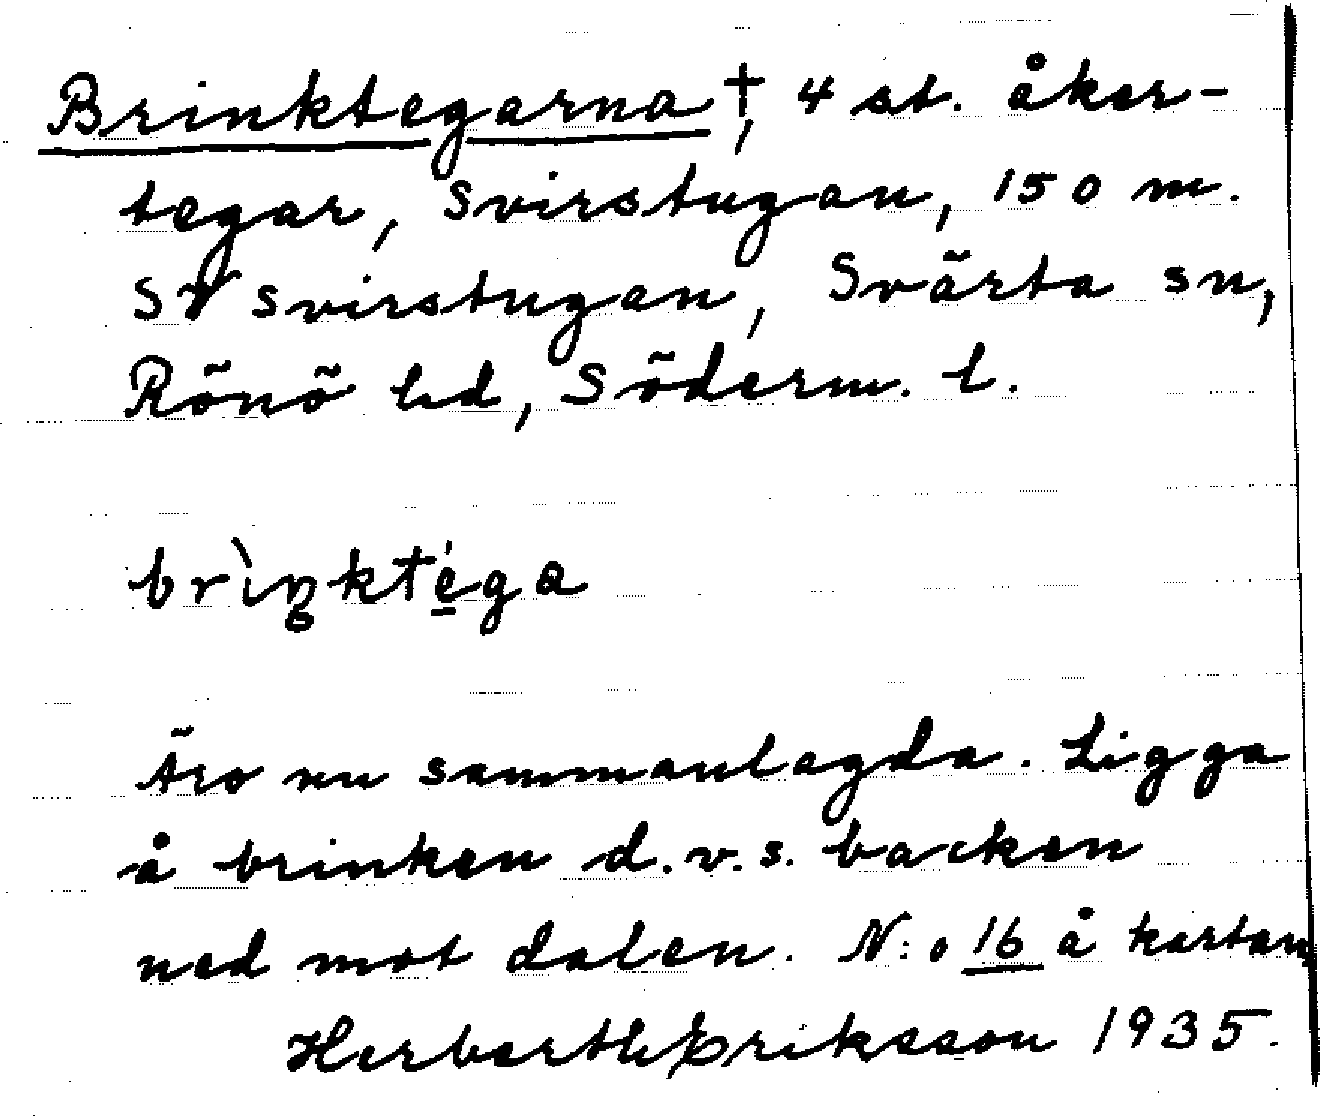 Brinktegarna †, 4 st. åker-
tegar, Svirstugan, 150 m.
SV Svirstugan, Svärta sn,
Rönö hd, Söderm. l.
brìŋktéga
Äro nu sammanlagda. Ligga
å brinken d.v.s. backen
ned mot dalen. N:o 16 å kartan
Herberth Eriksson 1935.